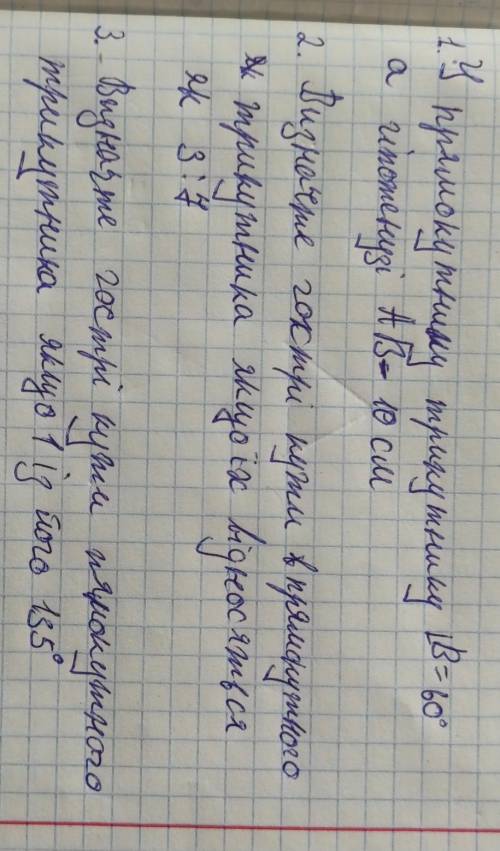 1. У прямокутнику трикутнику B=60°
а гіпотенузі AB= 10 см
2. Визначте гострі кути в прямокутного
трикутника якщо їх відносяться
як 3:7
3. Визначте гострі кути прямокутного
трикутника якщо 1 із його 135°